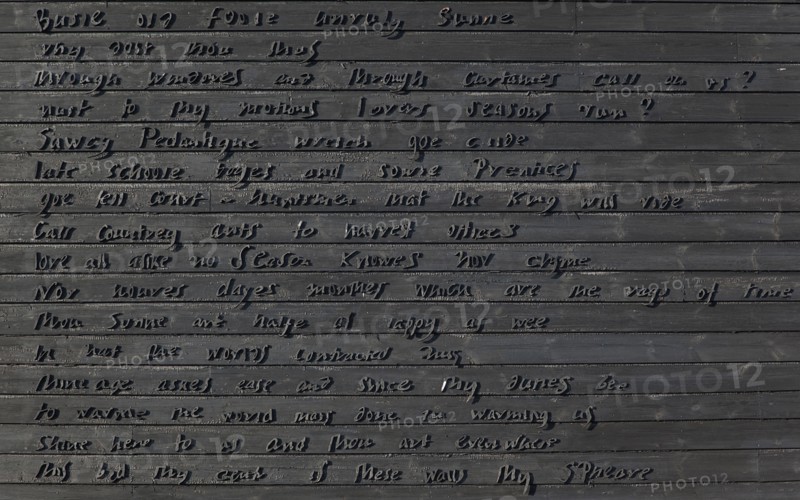 Busie old Foole unruly Sunne
why dost thou thus
through windows and through curtaines call on us?
must to thy motions lovers seasons run?
Sawcy Pedantique wretch goe chide
late schoole boyes and sowre Prentices
goe tell Court-huntsmen that the King will ride
Call Countrey ants to harvest offices
love all alike no Season Knowes nor clyme
Nor houres dayes monthes which are the rags of time
thou Sunne art halfe as happy as wee
In that the worlds contracted thus
thine age askes ease and since thy duties bee
to warme the world thats done in warming us
Shine here to us and thou art every where
this bed thy center is these walls thy Spheare
PHOTO12